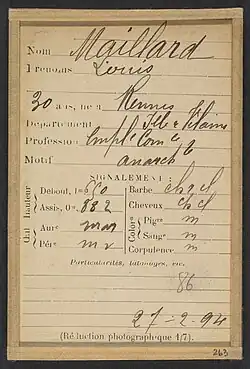 Nom Maillard
Prénoms Louis
30 ans, né à Rennes
Département Ille & Vilaine
Profession Empl. Comce
Motif anarch
SIGNALEMENT:
Hauteur Debout, 1m 60 Barbe ch. cl
Assis, 0m 88.2 Cheveux ch. cl
Œil Auré mar Color Pigre m
Péri m v Sangn m
Corpulence m
Particularités, tatouages, etc.
86
27-2-94
(Réduction photographique 1/7).
263